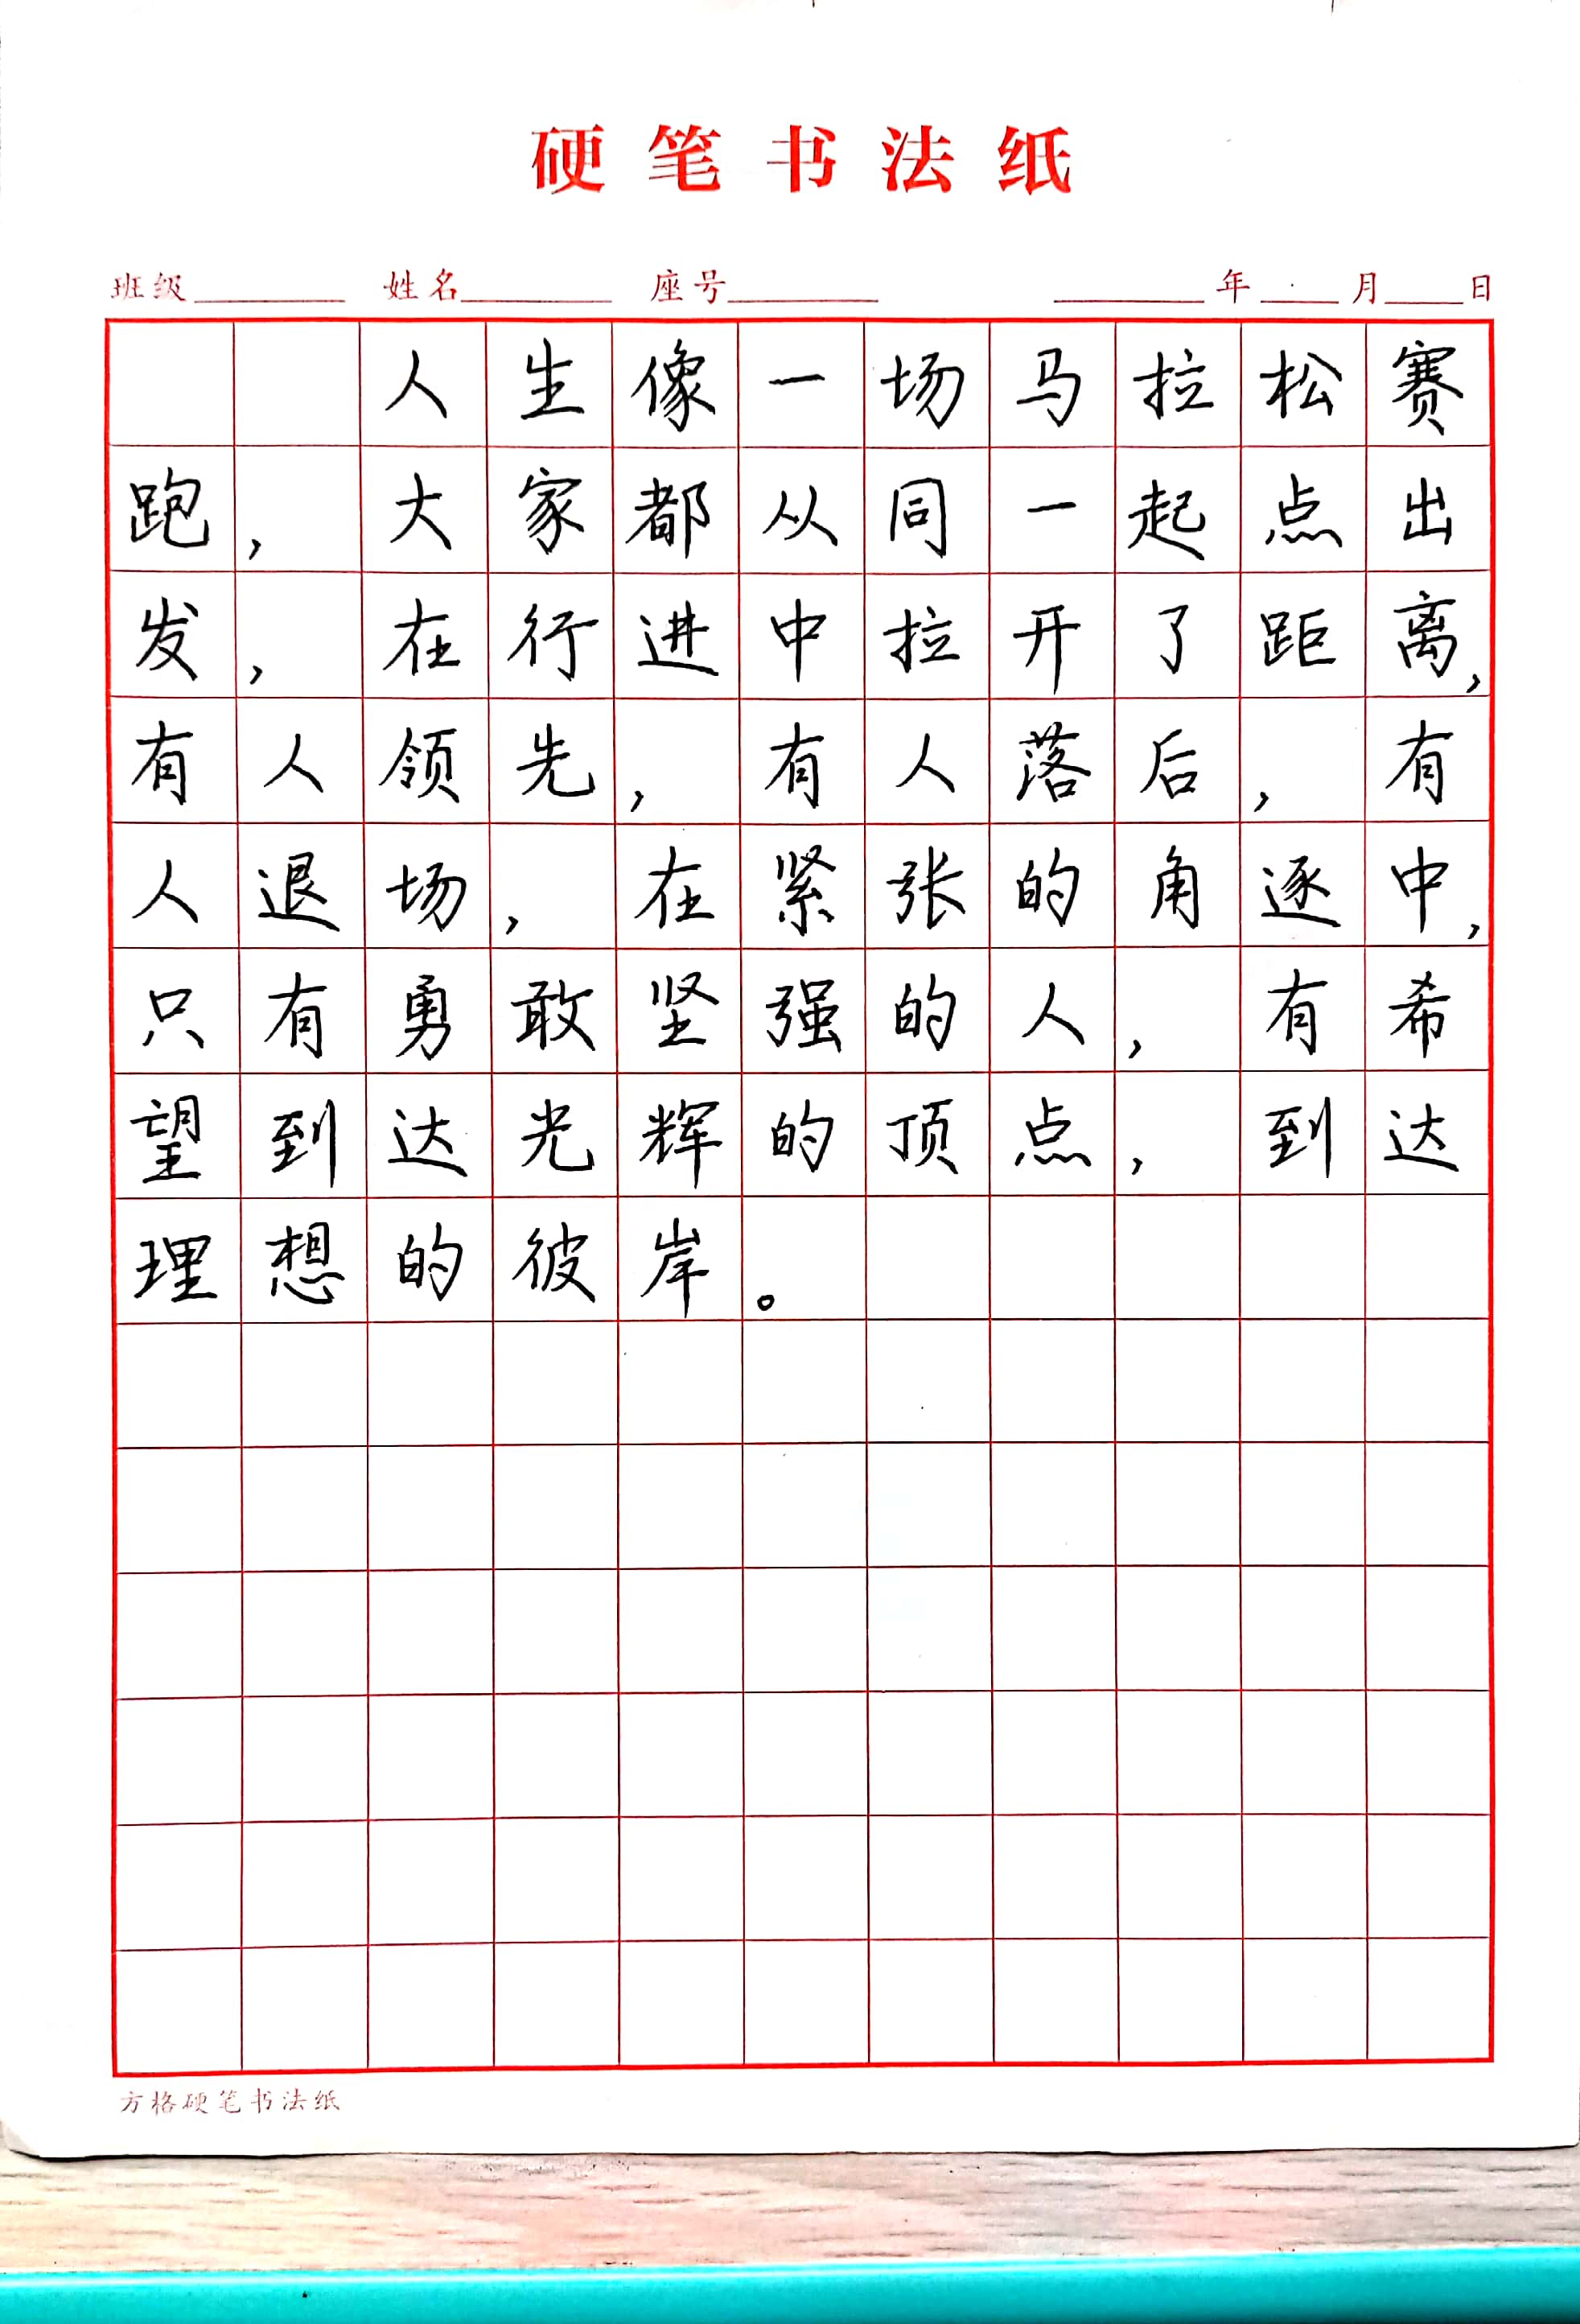 硬笔书法纸
班级 姓名 座号 年 月 日
人生像一场马拉松赛
跑，大家都从同一起点出
发，在行进中拉开了距离，
有人领先，有人落后，有
人退场，在紧张的角逐中，
只有勇敢坚强的人，有希
望到达光辉的顶点，到达
理想的彼岸。
方格硬笔书法纸